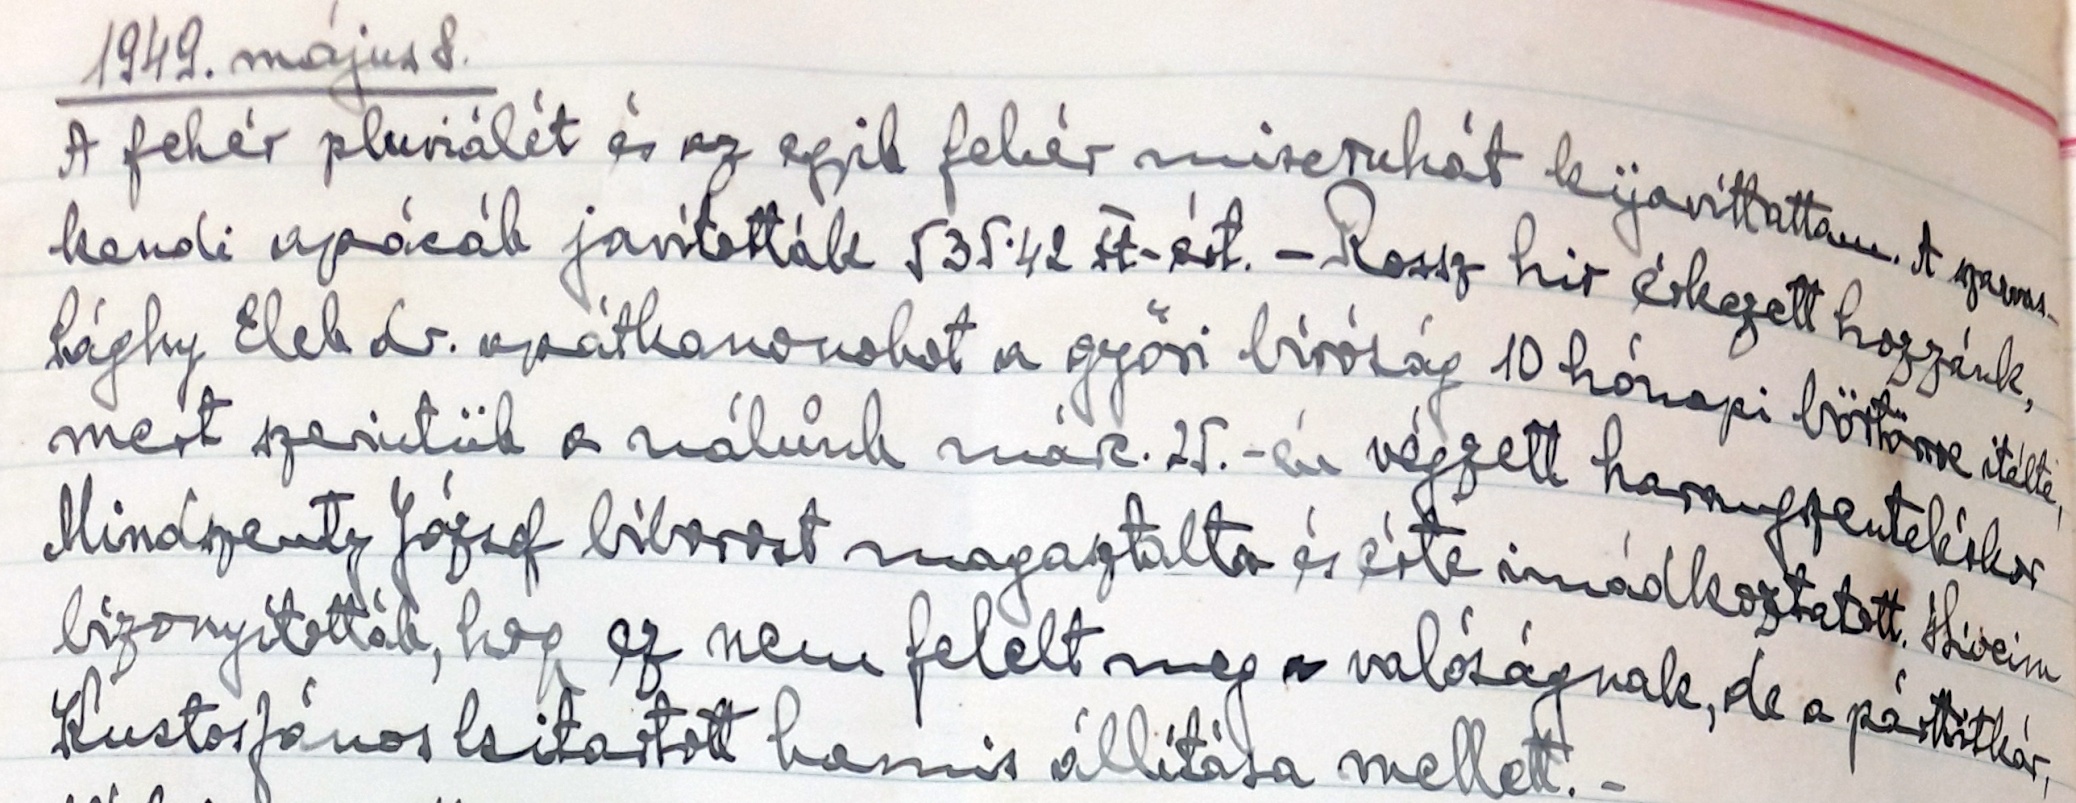 1949. május 8.
A fehér pluviálét és az egyik fehér miseruhát kijavíttattam. A szarvas-
kendi apácák javították 535.42 Ft-ért. – Rossz hir érkezett hozzánk,
Sághy Elek dr. apátkanonokot a győri bíróság 10 hónapi börtönre itélte,
mert szerintük a nálunk márc. 25.-én végzett harangszenteléskor
Mindszenty József bíborost magasztalta és érte imádkoztatott. Híveim
bizonyították, hogy ez nem felelt meg a valóságnak, de a párttitkár,
Kustos János kitartott hamis állítása mellett. –